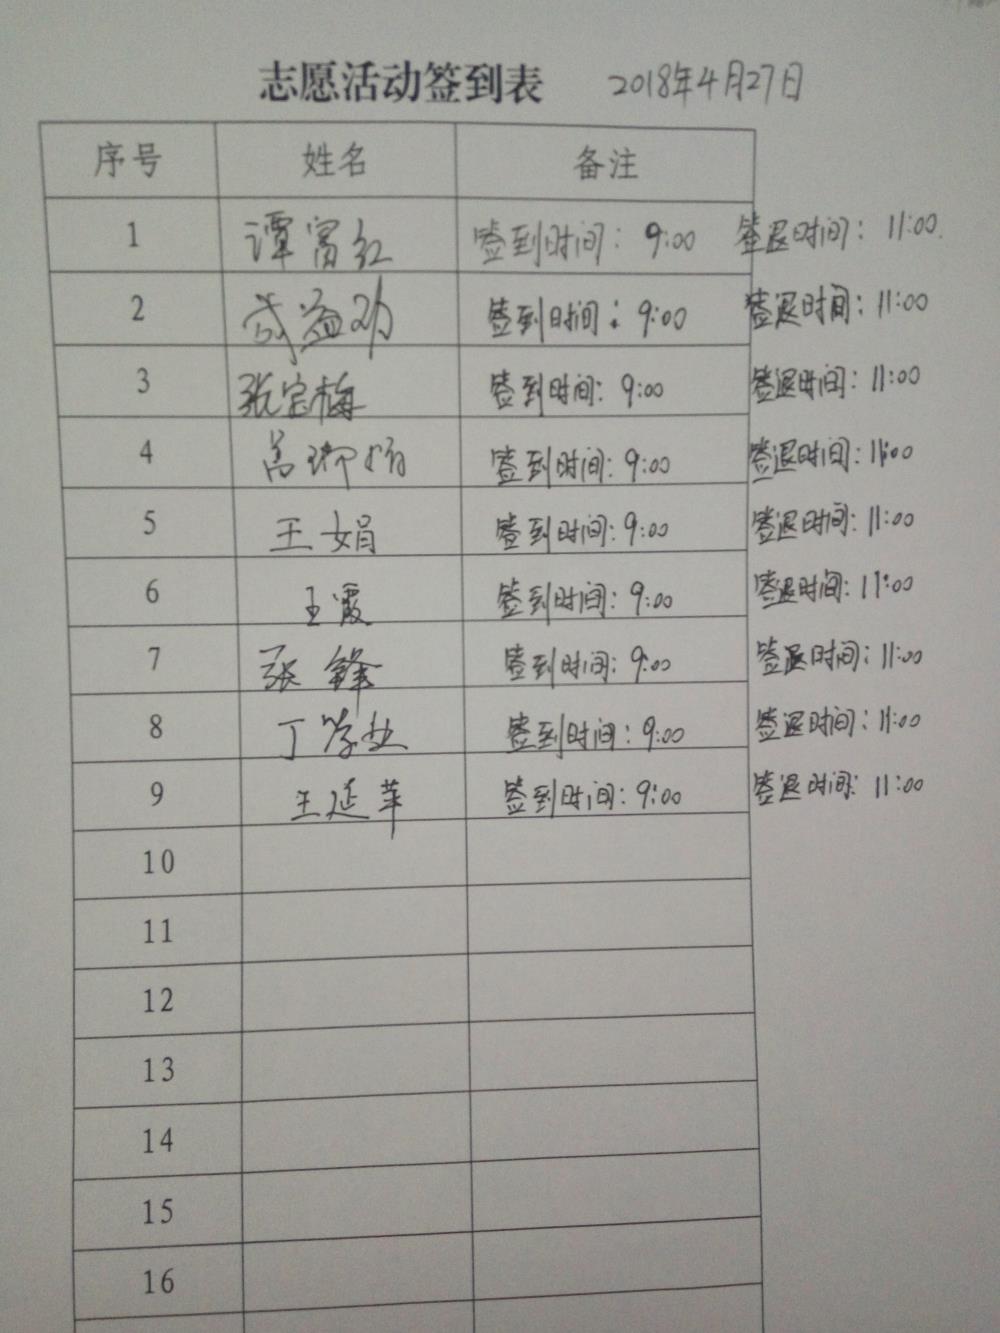 志愿活动签到表 2018年4月27日
序号 姓名 备注
1 谭富红 签到时间：9:00 签退时间：11:00
2 武益劝 签到时间：9:00 签退时间：11:00
3 张宝梅 签到时间：9:00 签退时间：11:00
4 签到时间：9:00 签退时间：11:00
5 王娟 签到时间：9:00 签退时间：11:00
6 王霞 签到时间：9:00 签退时间：11:00
7 张锋 签到时间：9:00 签退时间：11:00
8 丁学业 签到时间：9:00 签退时间：11:00
9 王延苹 签到时间：9:00 签退时间：11:00
10
11
12
13
14
15
16